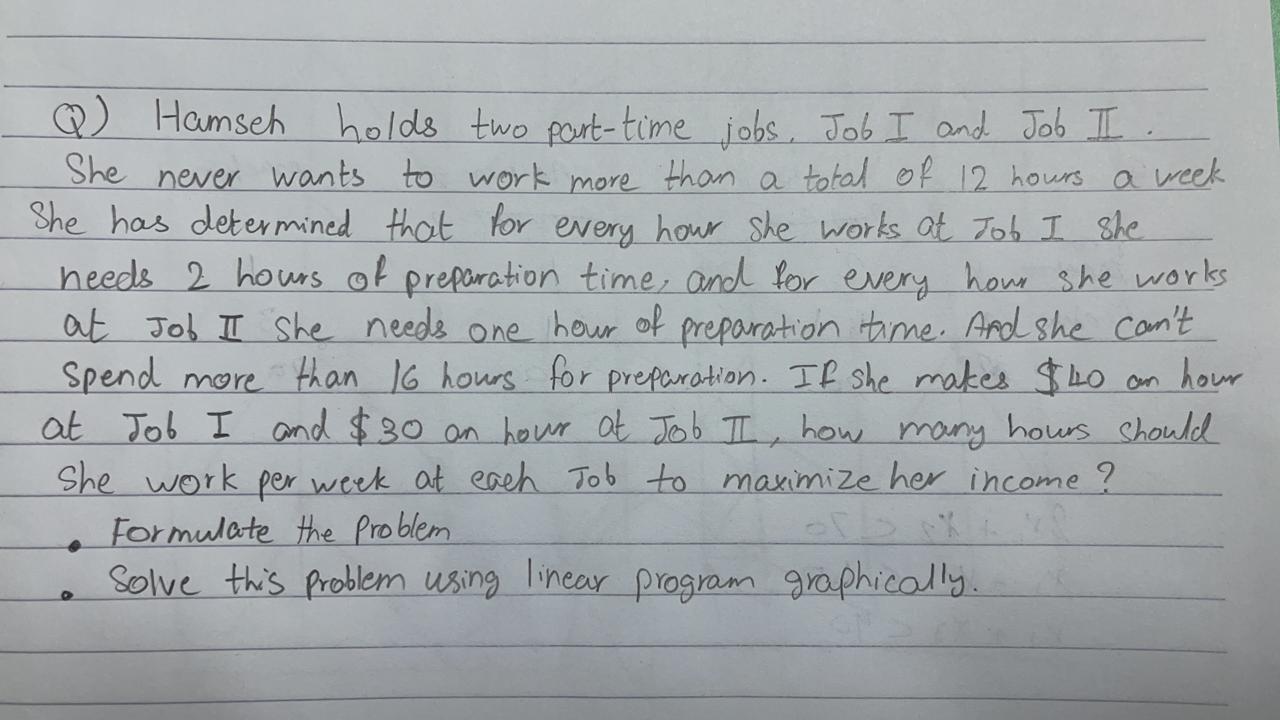 Q) Hamseh holds two part-time jobs, Job I and Job II.
She never wants to work more than a total of 12 hours a week
She has determined that for every hour she works at Job I she
needs 2 hours of preparation time, and for every hour she works
at Job II she needs one hour of preparation time. And she can't
spend more than 16 hours for preparation. If she makes $40 an hour
at Job I and $30 an hour at Job II, how many hours should
she work per week at each Job to maximize her income?
• Formulate the problem
• Solve this problem using linear program graphically.